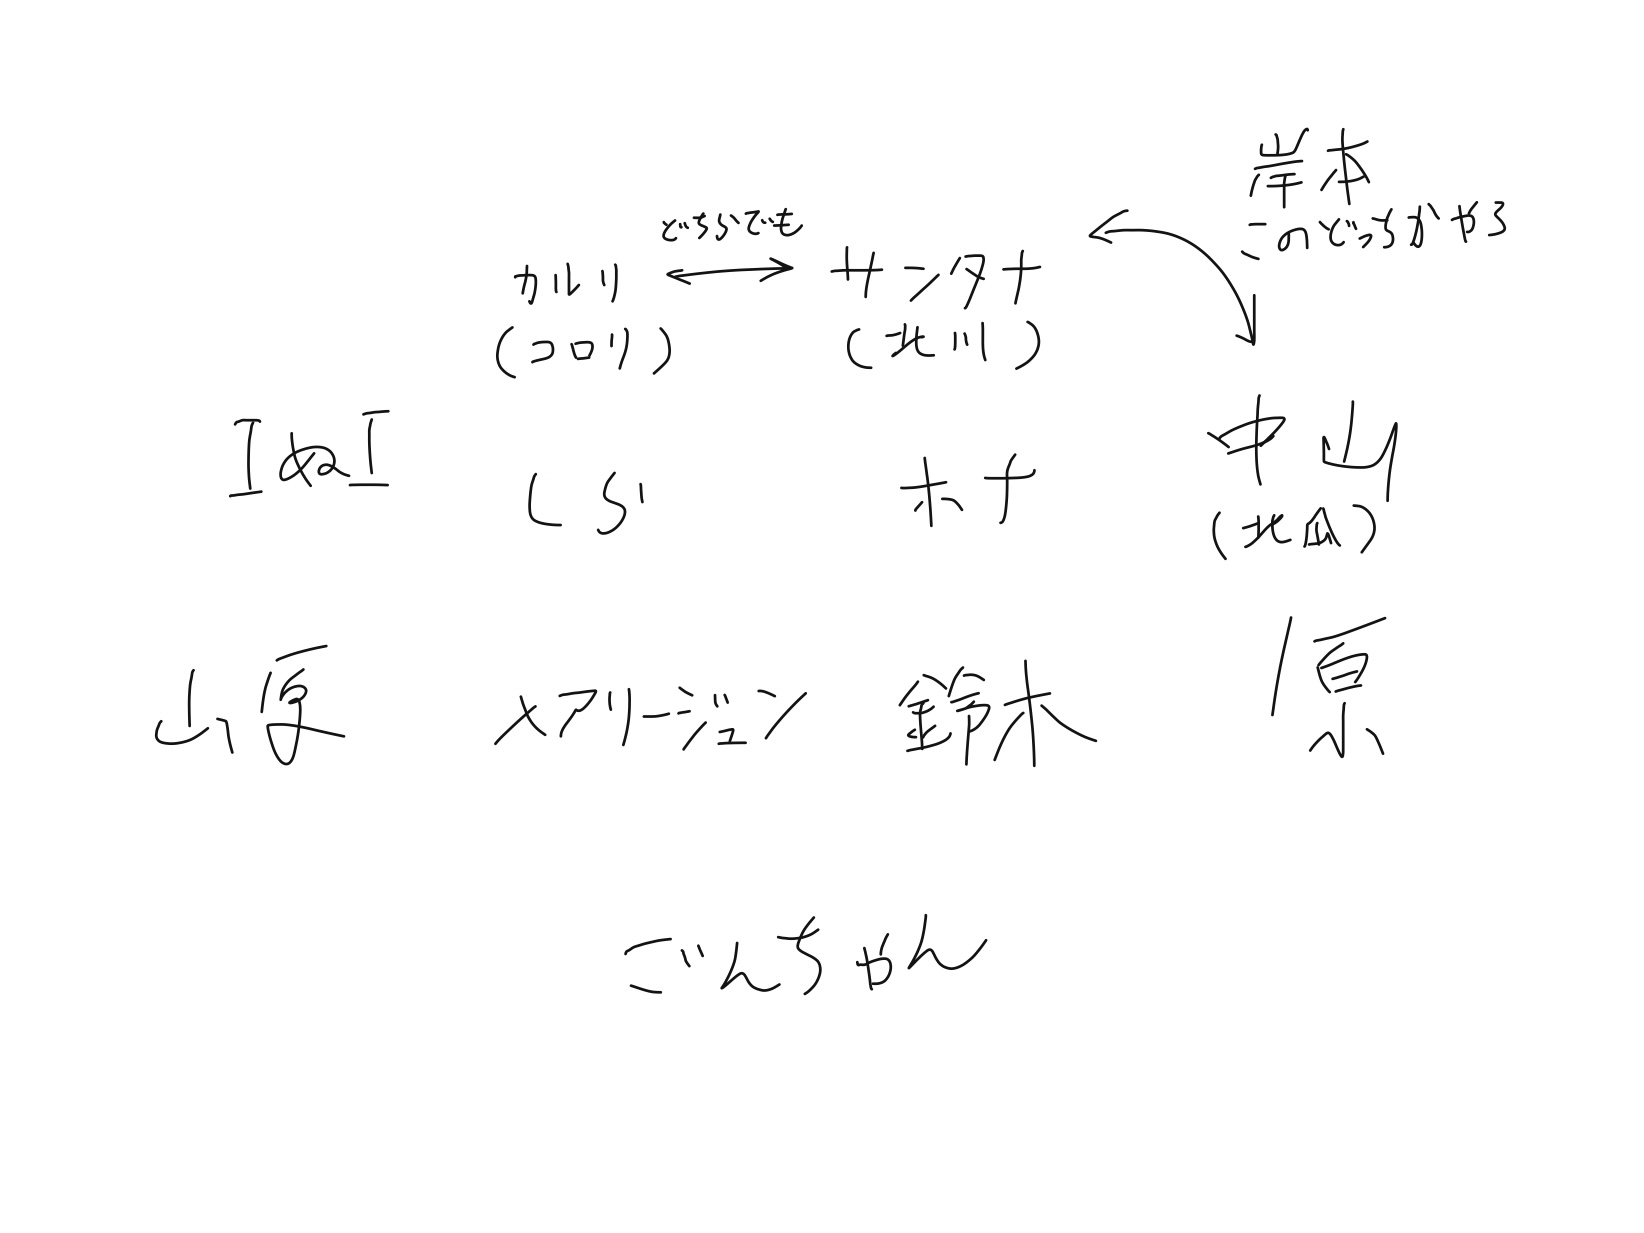 岸本
このどっちかやろ
どちらでも
カルリ サンタナ
(コロリ) (北川)
エぬエ しらい ホナ 中山
(北瓜)
山夏 メアリージュン 鈴木 原
ごんちゃん